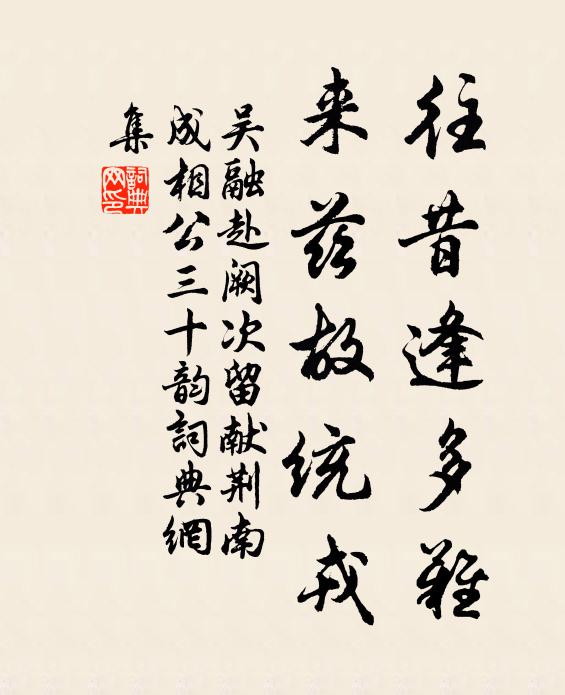 往昔逢多難
来茲故統戎
吴融赴阙次留献荆南
成相公三十韵詞典網
集
詞典網印